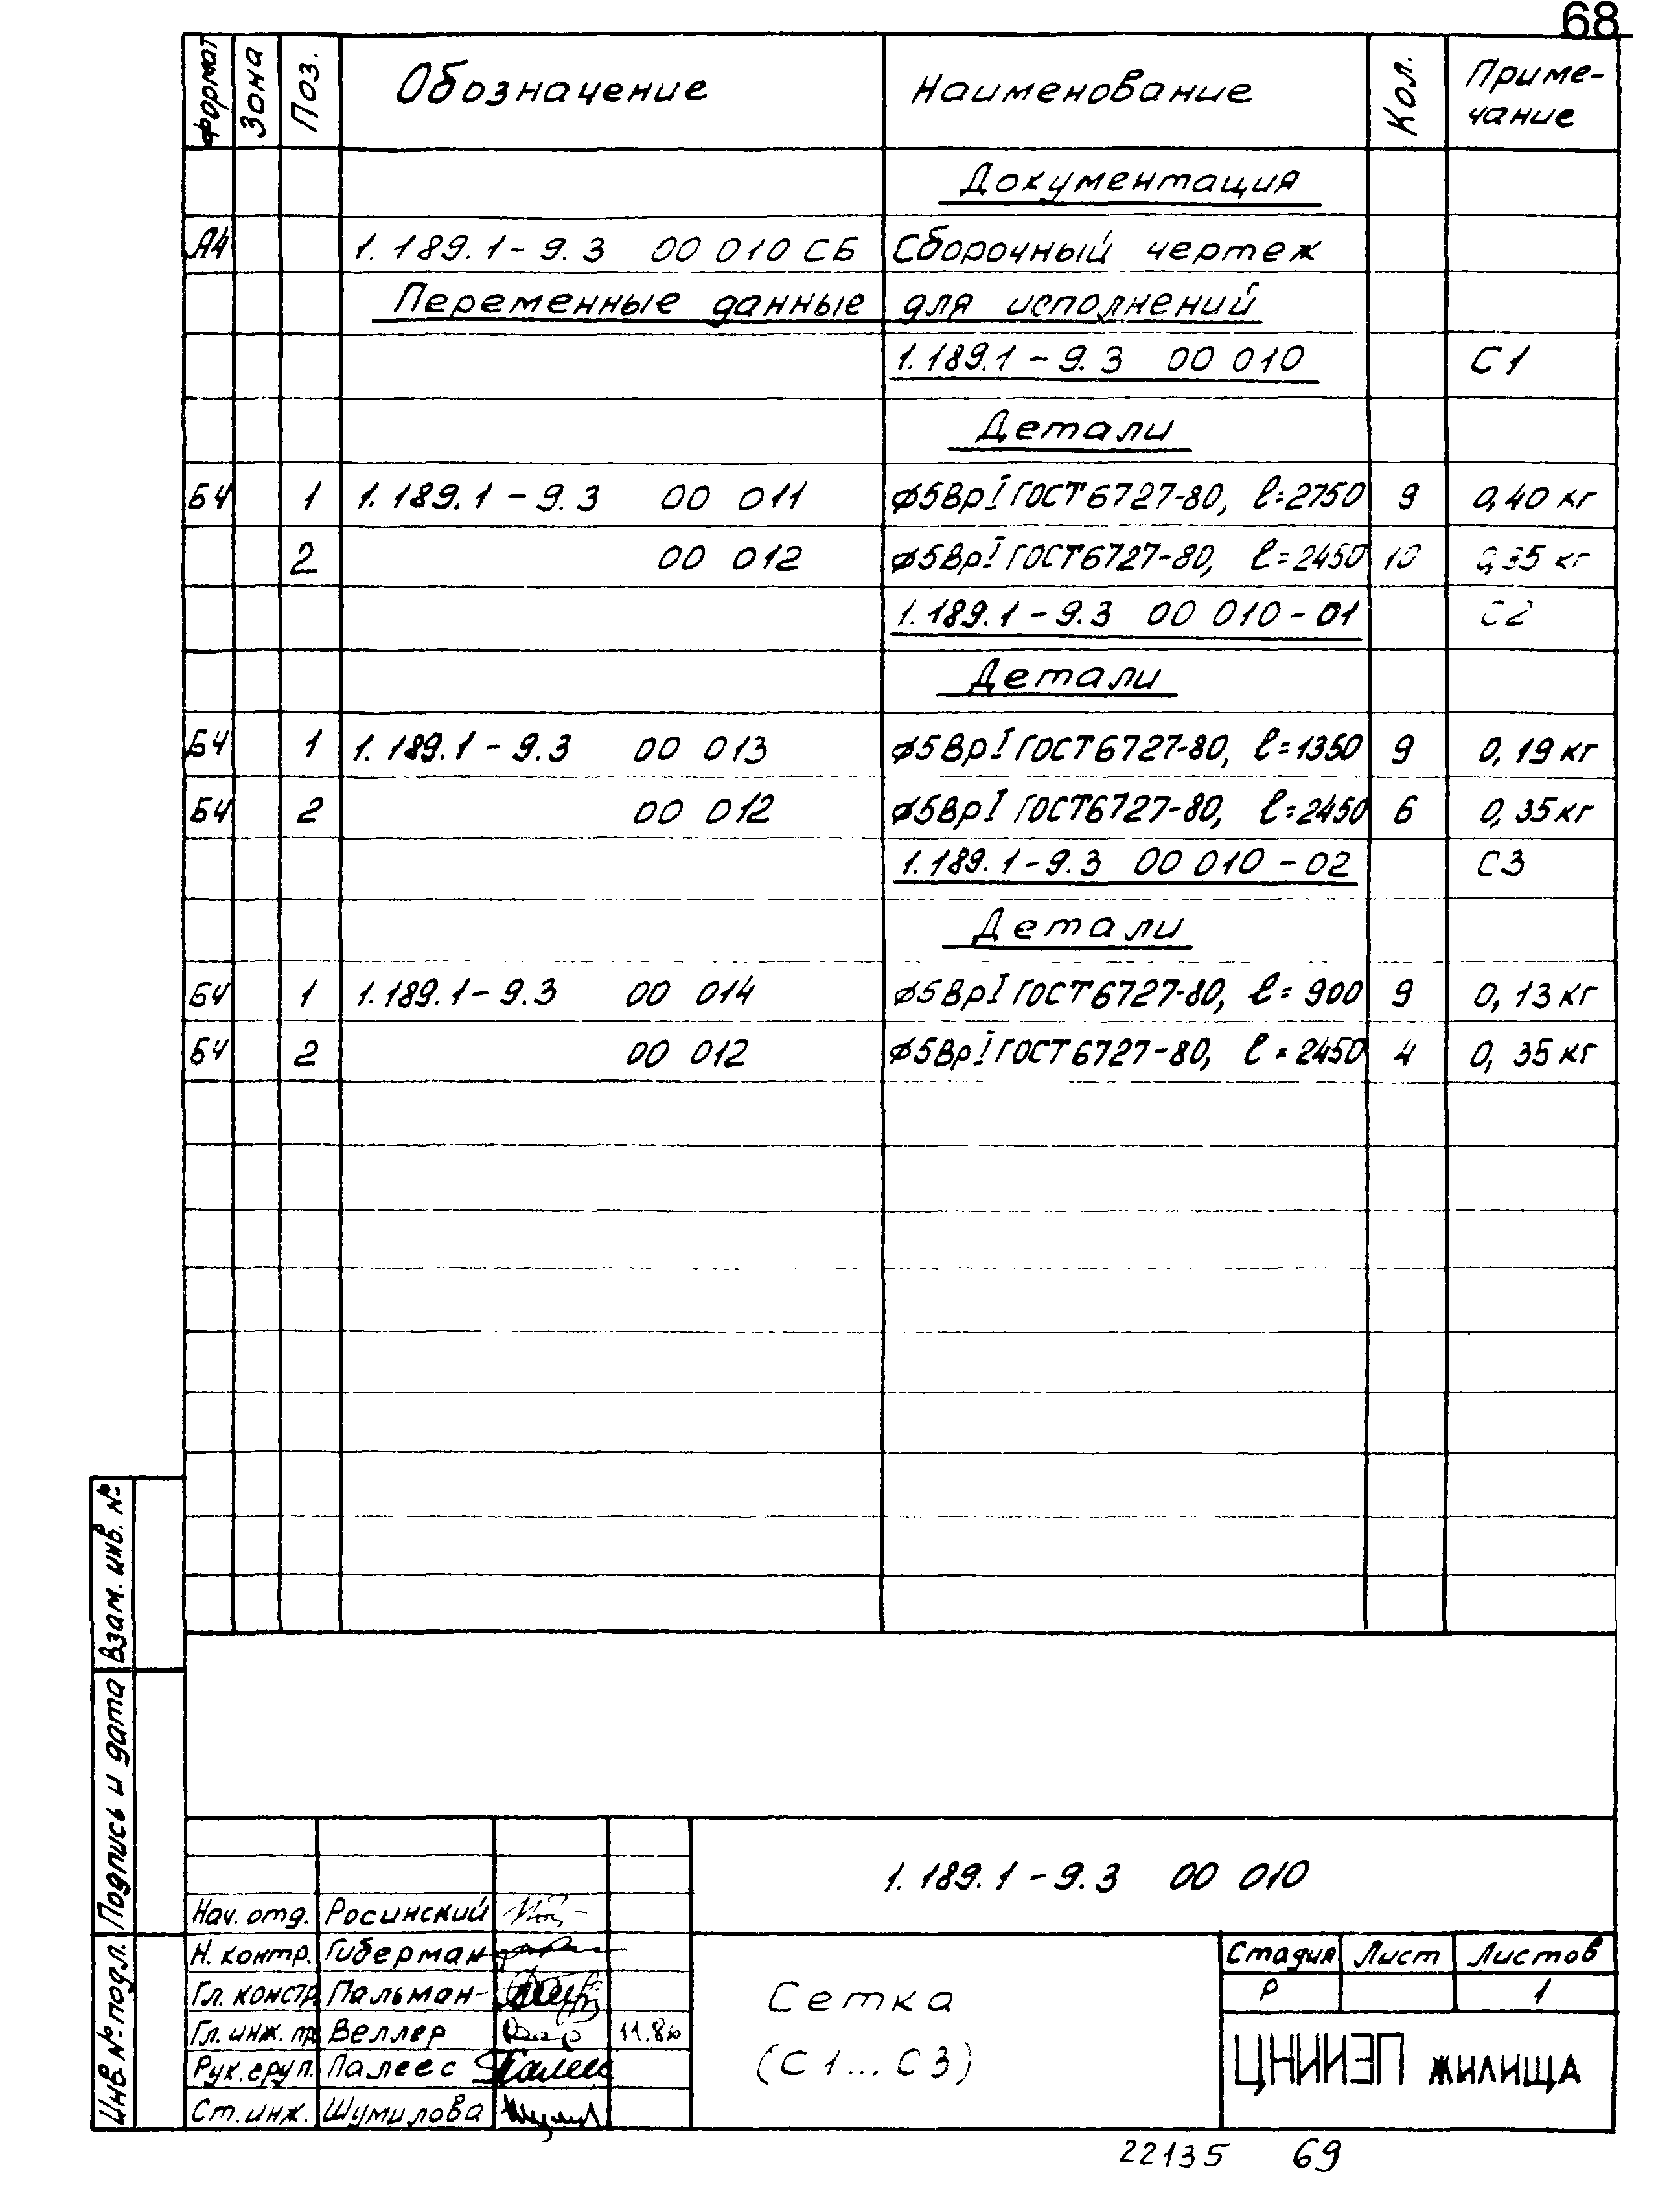 68
Формат Зона Поз. Обозначение Наименование Кол. Приме-
чание
Документация
А4 1.189.1-9.3 00 010 СБ Сборочный чертеж
Переменные данные для исполнений
1.189.1-9.3 00 010 С1
Детали
БЧ 1 1.189.1-9.3 00 011 ø5ВрI ГОСТ 6727-80, ℓ=2750 9 0,40 кг
2 00 012 ø5ВрI ГОСТ 6727-80, ℓ=2450 10 0,35 кг
1.189.1-9.3 00 010-01 С2
Детали
БЧ 1 1.189.1-9.3 00 013 ø5ВрI ГОСТ 6727-80, ℓ=1350 9 0,19 кг
БЧ 2 00 012 ø5ВрI ГОСТ 6727-80, ℓ=2450 6 0,35 кг
1.189.1-9.3 00 010-02 С3
Детали
БЧ 1 1.189.1-9.3 00 014 ø5ВрI ГОСТ 6727-80, ℓ=900 9 0,13 кг
БЧ 2 00 012 ø5ВрI ГОСТ 6727-80, ℓ=2450 4 0,35 кг
Взам. инв. №
Подпись и дата
Инв. № подл.
1.189.1-9.3 00 010
Нач. отд. Росинский
Н. контр. Гиберман
Гл. констр. Пальман
Гл. инж. пр. Веллер 11.86
Рук. груп. Палеес
Ст. инж. Шумилова
Сетка
(С1...С3)
Стадия Лист Листов
Р 1
ЦНИИЭП жилища
22135 69